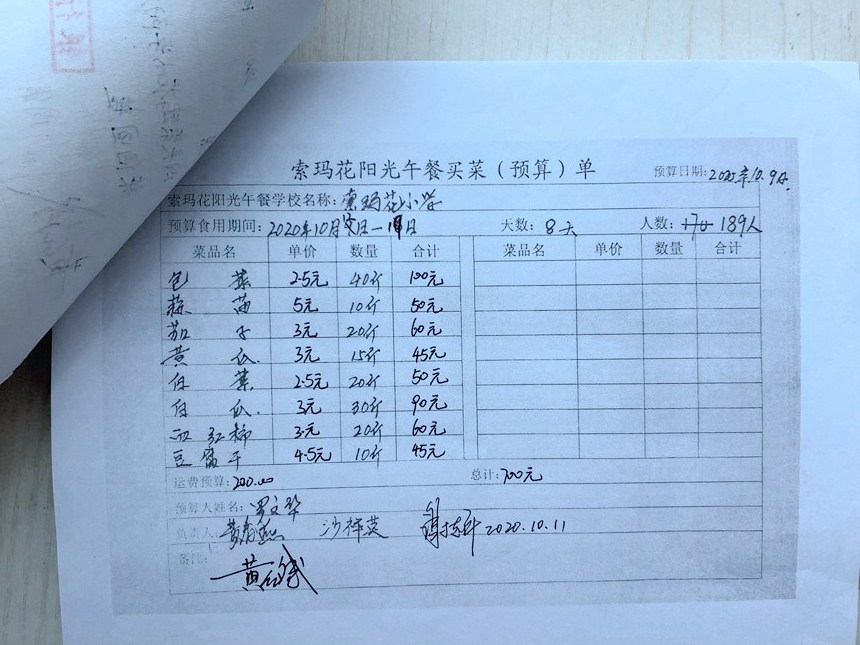 索玛花阳光午餐买菜(预算)单
预算日期:2020年10.9日.
索玛花阳光午餐学校名称:索玛花小学
预算食用期间:2020年10月 日— 日 天数:8天 人数: 189人
菜品名 单价 数量 合计 菜品名 单价 数量 合计
包菜 2.5元 40斤 100元
蒜苗 5元 10斤 50元
茄子 3元 20斤 60元
黄瓜. 3元 15斤 45元
白菜 2.5元 20斤 50元
白瓜. 3元 30斤 90元
西红柿 3元 20斤 60元
豆腐干 4.5元 10斤 45元
运费预算:200.00 总计:700元
预算人姓名:
负责人: 2020.10.11
备注: